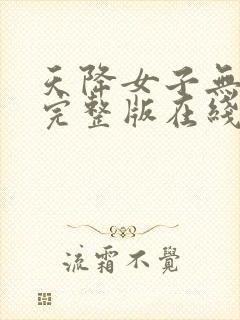 天降女子無
完整版在綫
流霜不覺